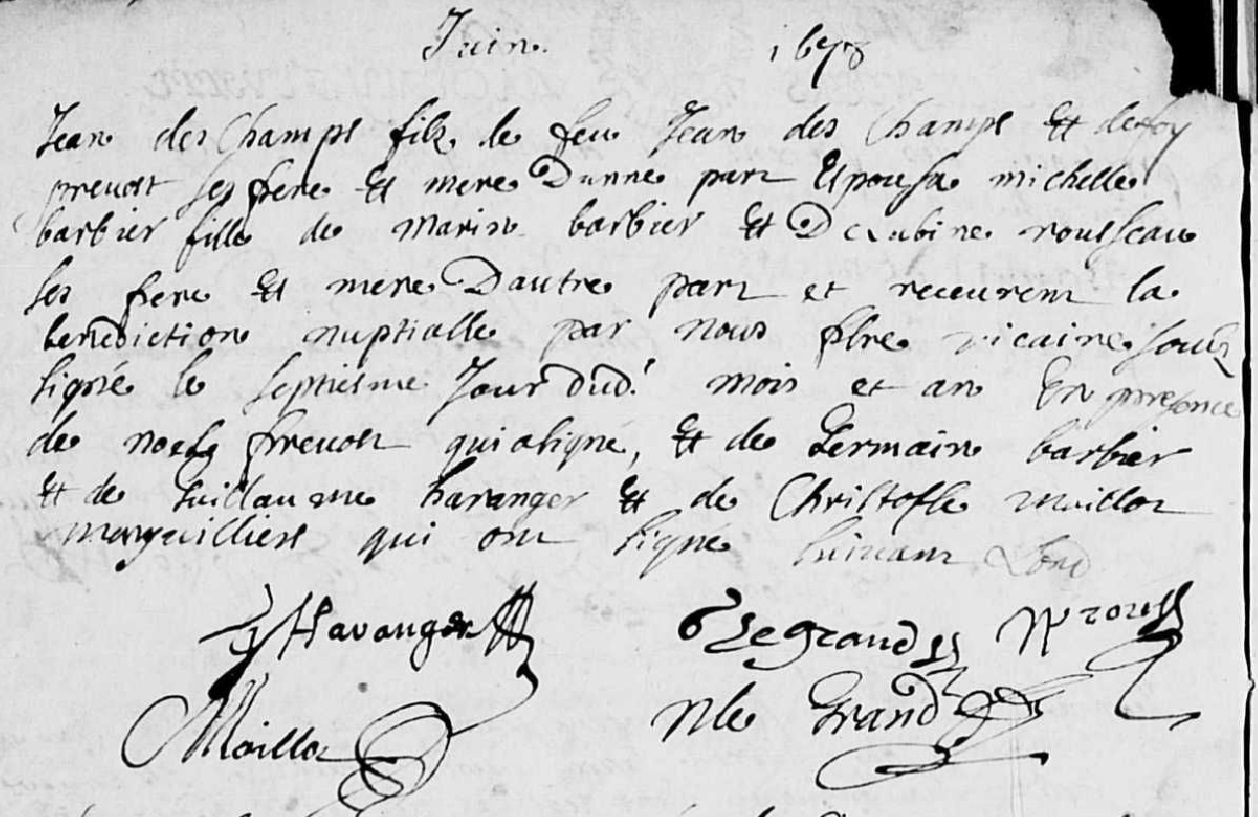 Juin 1678
Jean des Champs filz de feu Jean des Champs Et de foy
prevost ses pere Et mere D'unne part Espousa michelle
barbier fille de Marin barbier Et D'Aubine rousseau
ses pere Et mere D'autre part et receurent la
benediction nuptialle par nous pbre vicaire soubz
signé le septiesme Jour dud. mois et an En presence
de noel prevost qui a signé, Et de Germain barbier
Et de Guillaume haranger Et de Christofle maillot
marguilliers qui ont signé suivant Lord
G Haranger Legrand N
Maillot N le Grand